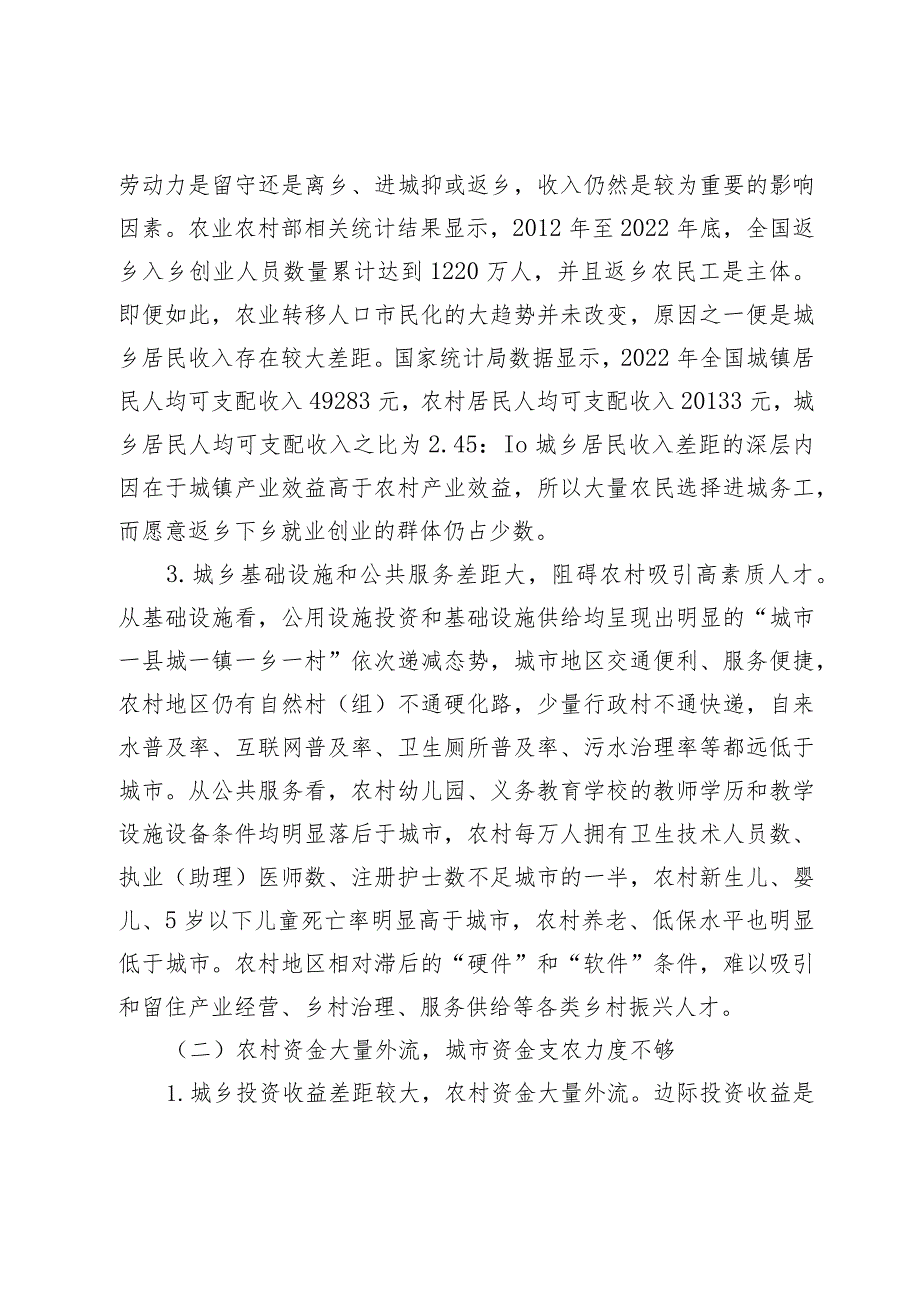 劳动力是留守还是离乡、进城抑或返乡，收入仍然是较为重要的影响
因素。农业农村部相关统计结果显示，2012 年至 2022 年底，全国返
乡入乡创业人员数量累计达到 1220 万人，并且返乡农民工是主体。
即便如此，农业转移人口市民化的大趋势并未改变，原因之一便是城
乡居民收入存在较大差距。国家统计局数据显示，2022 年全国城镇居
民人均可支配收入 49283 元，农村居民人均可支配收入 20133 元，城
乡居民人均可支配收入之比为 2.45：Io 城乡居民收入差距的深层内
因在于城镇产业效益高于农村产业效益，所以大量农民选择进城务工，
而愿意返乡下乡就业创业的群体仍占少数。
3.城乡基础设施和公共服务差距大，阻碍农村吸引高素质人才。
从基础设施看，公用设施投资和基础设施供给均呈现出明显的“城市
一县城一镇一乡一村”依次递减态势，城市地区交通便利、服务便捷，
农村地区仍有自然村（组）不通硬化路，少量行政村不通快递，自来
水普及率、互联网普及率、卫生厕所普及率、污水治理率等都远低于
城市。从公共服务看，农村幼儿园、义务教育学校的教师学历和教学
设施设备条件均明显落后于城市，农村每万人拥有卫生技术人员数、
执业（助理）医师数、注册护士数不足城市的一半，农村新生儿、婴
儿、5 岁以下儿童死亡率明显高于城市，农村养老、低保水平也明显
低于城市。农村地区相对滞后的“硬件”和“软件”条件，难以吸引
和留住产业经营、乡村治理、服务供给等各类乡村振兴人才。
（二）农村资金大量外流，城市资金支农力度不够
1.城乡投资收益差距较大，农村资金大量外流。边际投资收益是